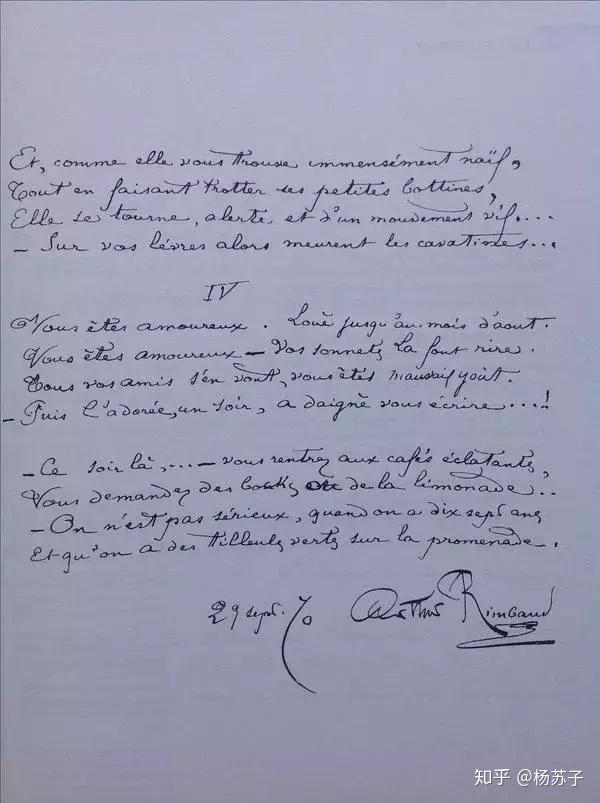 Et, comme elle vous trouve immensément naïf,
Tout en faisant trotter ses petites bottines,
Elle se tourne, alerte et d'un mouvement vif....
– Sur vos lèvres alors meurent les cavatines...
IV
Vous êtes amoureux. Loué jusqu'au mois d'aout.
Vous êtes amoureux – Vos sonnets La font rire.
Tous vos amis s'en vont, vous êtes mauvais goût.
– Puis l'adorée, un soir, a daigné vous écrire...!
– Ce soir là,... – vous rentrez aux cafés éclatants,
Vous demandez des bocks ou de la limonade..
– On n'est pas sérieux, quand on a dix sept ans
Et qu'on a des tilleuls verts sur la promenade.
29 sept. 70 Arthur Rimbaud
知乎 @杨苏子